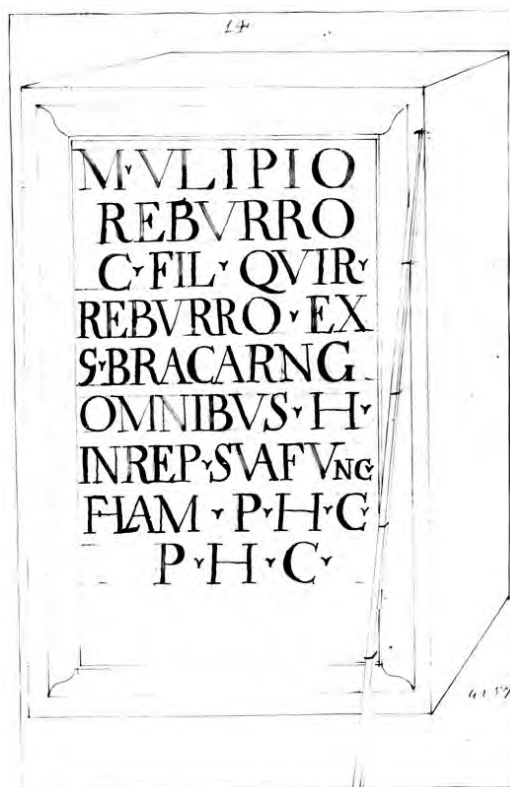 14
M·VLIPIO
REBVRRO
C·FIL·QVIR·
REBVRRO·EX
S·BRACARNG
OMNIBVS·H·
INREP·SVAFVNG
FLAM·P·H·C·
P·H·C·